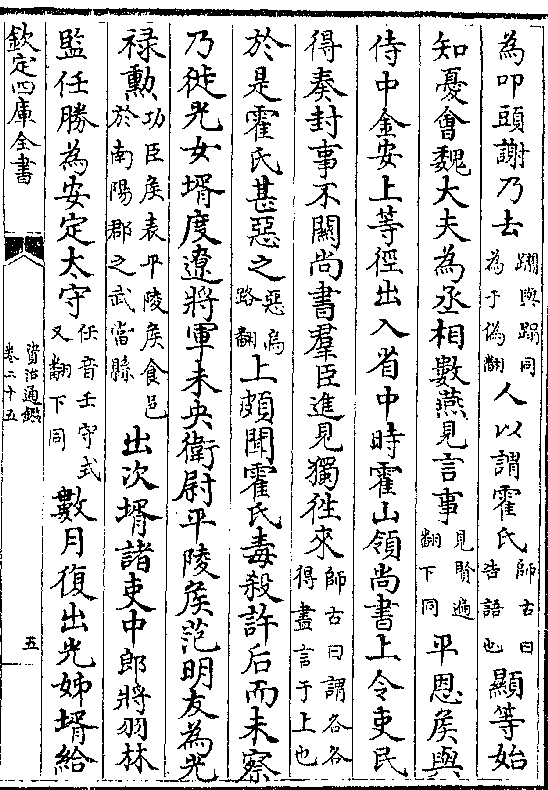 為叩頭謝乃去躢與蹋同為于偽翻人以謂霍氏師古曰告語也顯等始
知憂會魏大夫為丞相數燕見言事見賢遍翻下同平恩侯與
侍中金安上等徑出入省中時霍山領尚書上令吏民
得奏封事不關尚書羣臣進見獨徃來師古曰謂各各得盡言于上也
於是霍氏甚惡之惡烏路翻上頗聞霍氏毒殺許后而未察
乃徙光女壻度遼將軍未央衛尉平陵侯范明友為光
禄勲功臣侯表平陵侯食邑於南陽郡之武當縣出次壻諸吏中郎將羽林
監任勝為安定太守任音壬守式又翻下同數月復出光姊壻給
欽定四庫全書
資治通鑑
卷二十五
五